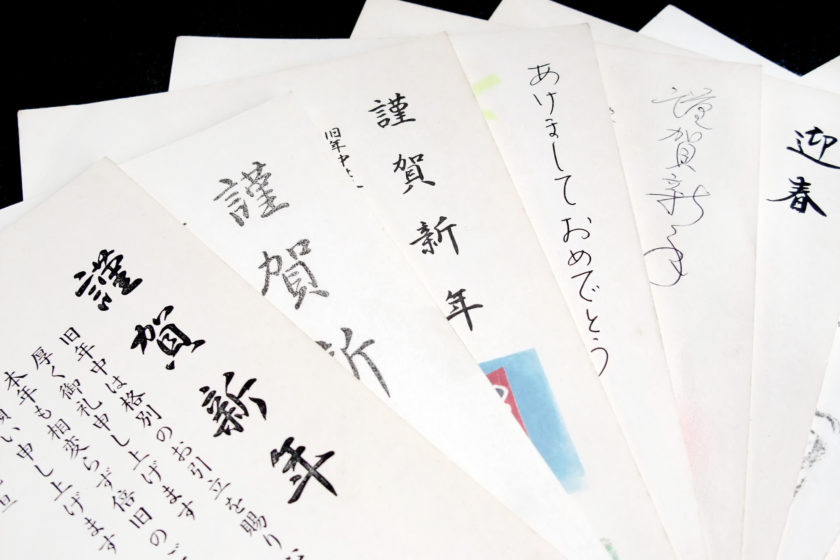 謹賀新年
旧年中は格別のお引立を賜り
厚く御礼申し上げます
本年も相変らず倍旧のご
願い申し上げます
謹賀新
謹賀新年
旧年中
あけましておめでとう
謹賀新年
迎春